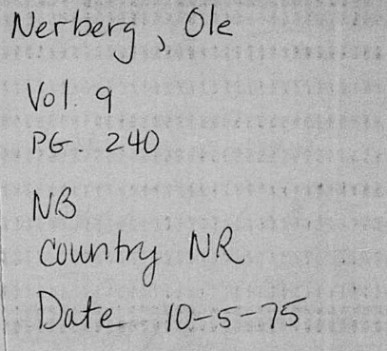 Nerberg, Ole
Vol. 9
PG. 240
NB
Country NR
Date 10-5-75